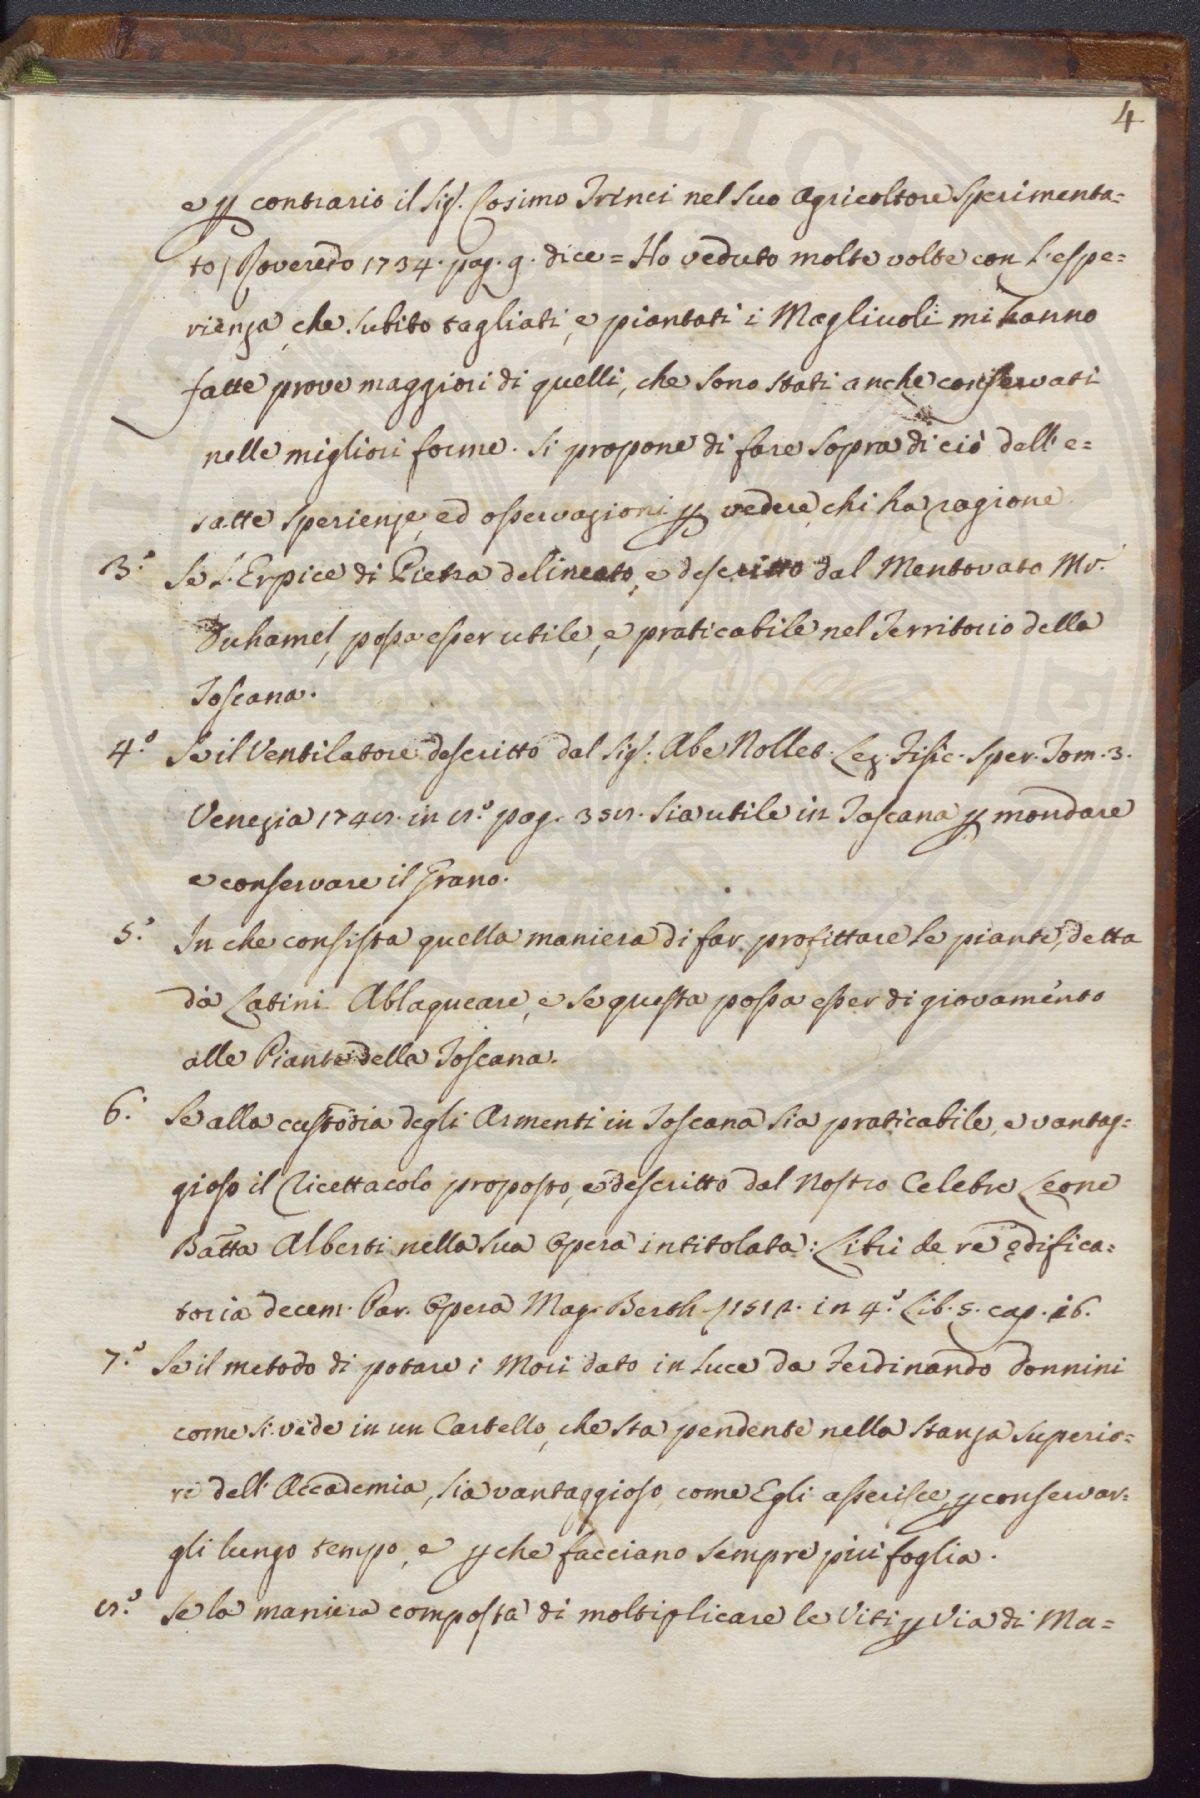 4
e p contrario il Sig. Cosimo Trinci nel suo Agricoltore Sperimenta=
to / Roveredo 1734. pag. 9. dice = Ho veduto molte volte con l'espe=
rienza, che subito tagliati, e piantati i Magliuoli mi hanno
fatte prove maggiori di quelli, che sono stati anche conservati
nelle migliori forme. Si propone di fare sopra di ciò dell'e=
satte sperienze, ed osservazioni p vedere, chi ha ragione
3.° Se l'Erpice di Pietra delineato, e descritto dal Mentovato Mr.
Duhamel, possa esser utile, e praticabile nel Territorio della
Toscana.
4.° Se il Ventilatore descritto dal Sig. Abe Nollet. Lez. Fisic. Sper. Tom. 3.
Venezia 1748. in 8.° pag. 358. sia utile in Toscana p mondare
e conservare il Grano.
5.° In che consista quella maniera di far profittare le piante, detta
dà Latini Ablaqueare, e se questa possa esser di giovamento
alle Piante della Toscana.
6.° Se alla custodia degli Armenti in Toscana sia praticabile, e vantag=
gioso il Ricettacolo proposto, e descritto dal Nostro Celebre Leone
Batta Alberti nella sua Opera intitolata: Libri de re ędifica=
toria decem. Par. Opera Mag. Berth. 1512. in 4.° Lib. 5. cap. 16.
7.° Se il metodo di potare i Mori dato in luce da Ferdinando Donnini
come si vede in un Cartello, che sta pendente nella stanza superio=
re dell'Accademia, sia vantaggioso, come Egli asserisce, p conservar=
gli lungo tempo, e pche facciano sempre più foglia.
8.° Se la maniera composta di moltiplicare le Viti p via di Ma=
PVBLIC